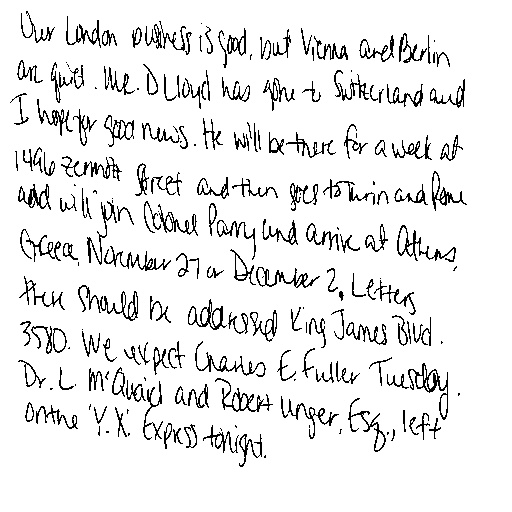 Our London business is good, but Vienna and Berlin
are quiet. Mr. D Lloyd has gone to Switzerland and
I hope for good news. He will be there for a week at
1496 Zermott Street and then goes to Turin and Rome
and will join Colonel Parry and arrive at Athens,
Greece, November 27 or December 2. Letters
there should be addressed King James Blvd.
3580. We expect Charles E. Fuller Tuesday.
Dr. L McQuaid and Robert Unger, Esq., left
on the 'Y.X.' Express tonight.